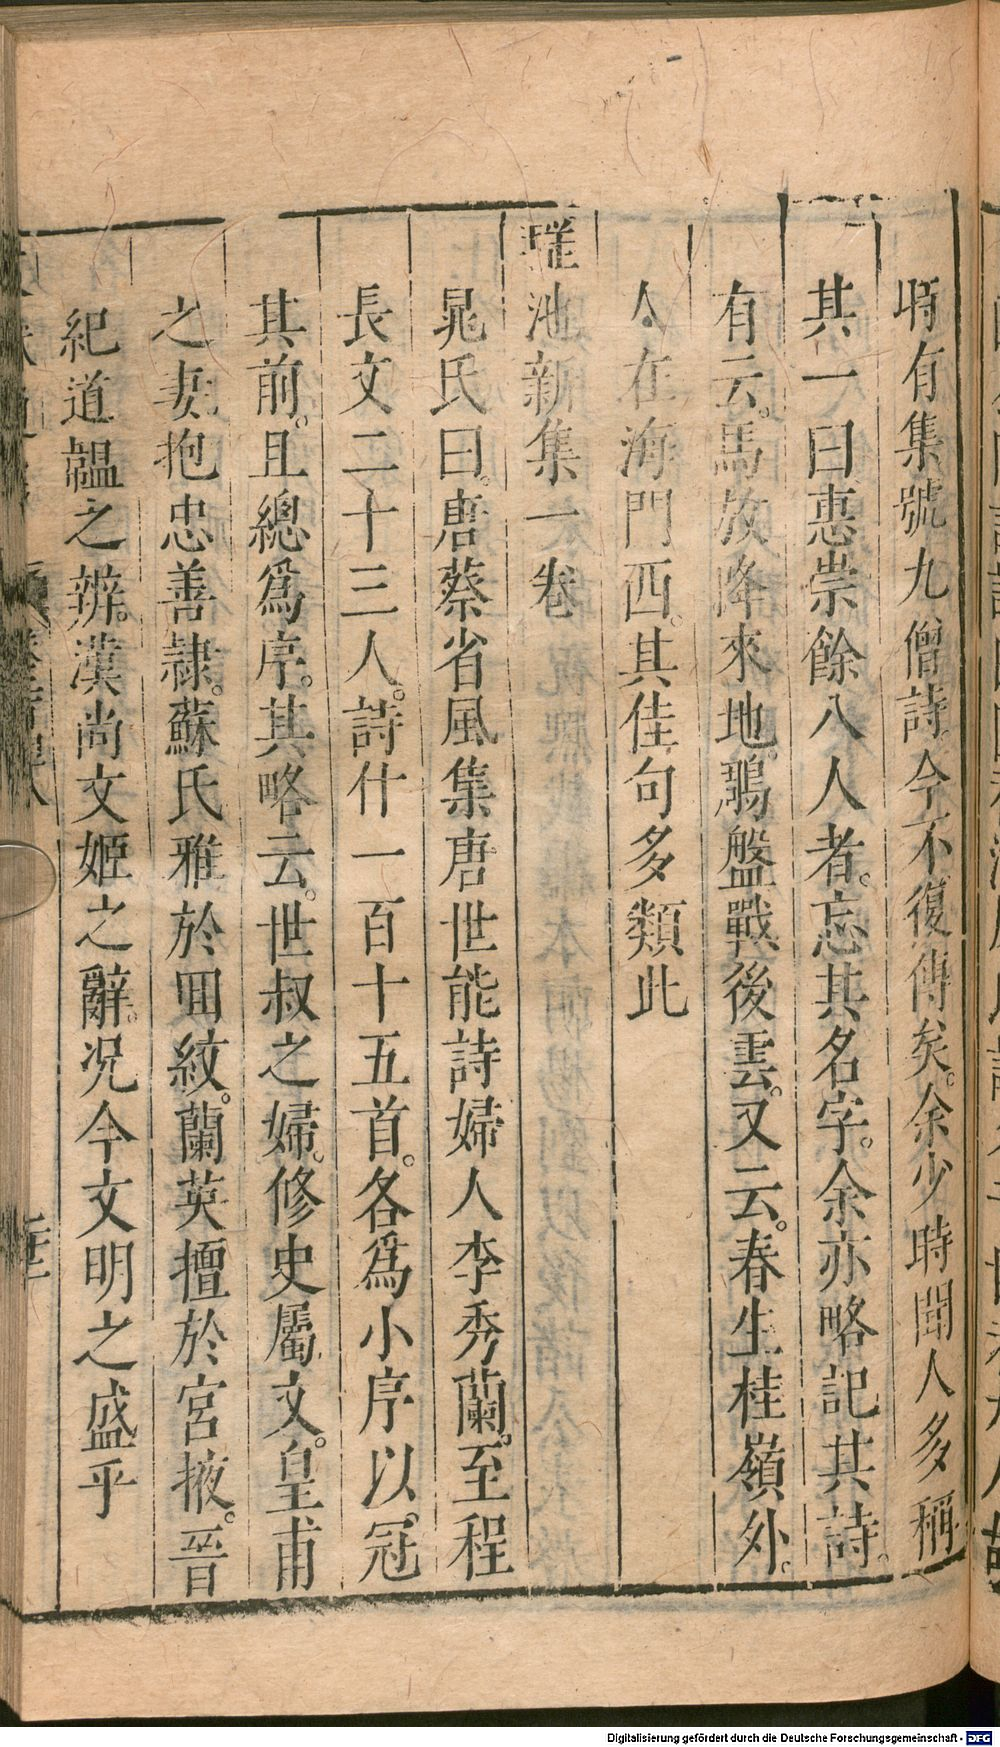 時有集號九僧詩今不復傳矣。余少時聞人多稱
其一曰惠崇餘八人者。忘其名字。余亦略記其詩。
有云。馬放降來地。鵰盤戰後雲。又云。春生桂嶺外。
人在海門西。其佳句多類此
瑤池新集一卷
晁氏曰。唐蔡省風集唐世能詩婦人李秀蘭。至程
長文二十三人。詩什一百十五首。各爲小序以。冠
其前。且總爲序。其略云。世叔之婦。修史屬文。皇甫
之妻抱忠善隷。蘇氏雅於囬紋。蘭英擅於宮掖。晉
紀道韞之辨。漢尚文姬之辭。况今文明之盛乎
Digitalisierung gefördert durch die Deutsche Forschungsgemeinschaft - DFG